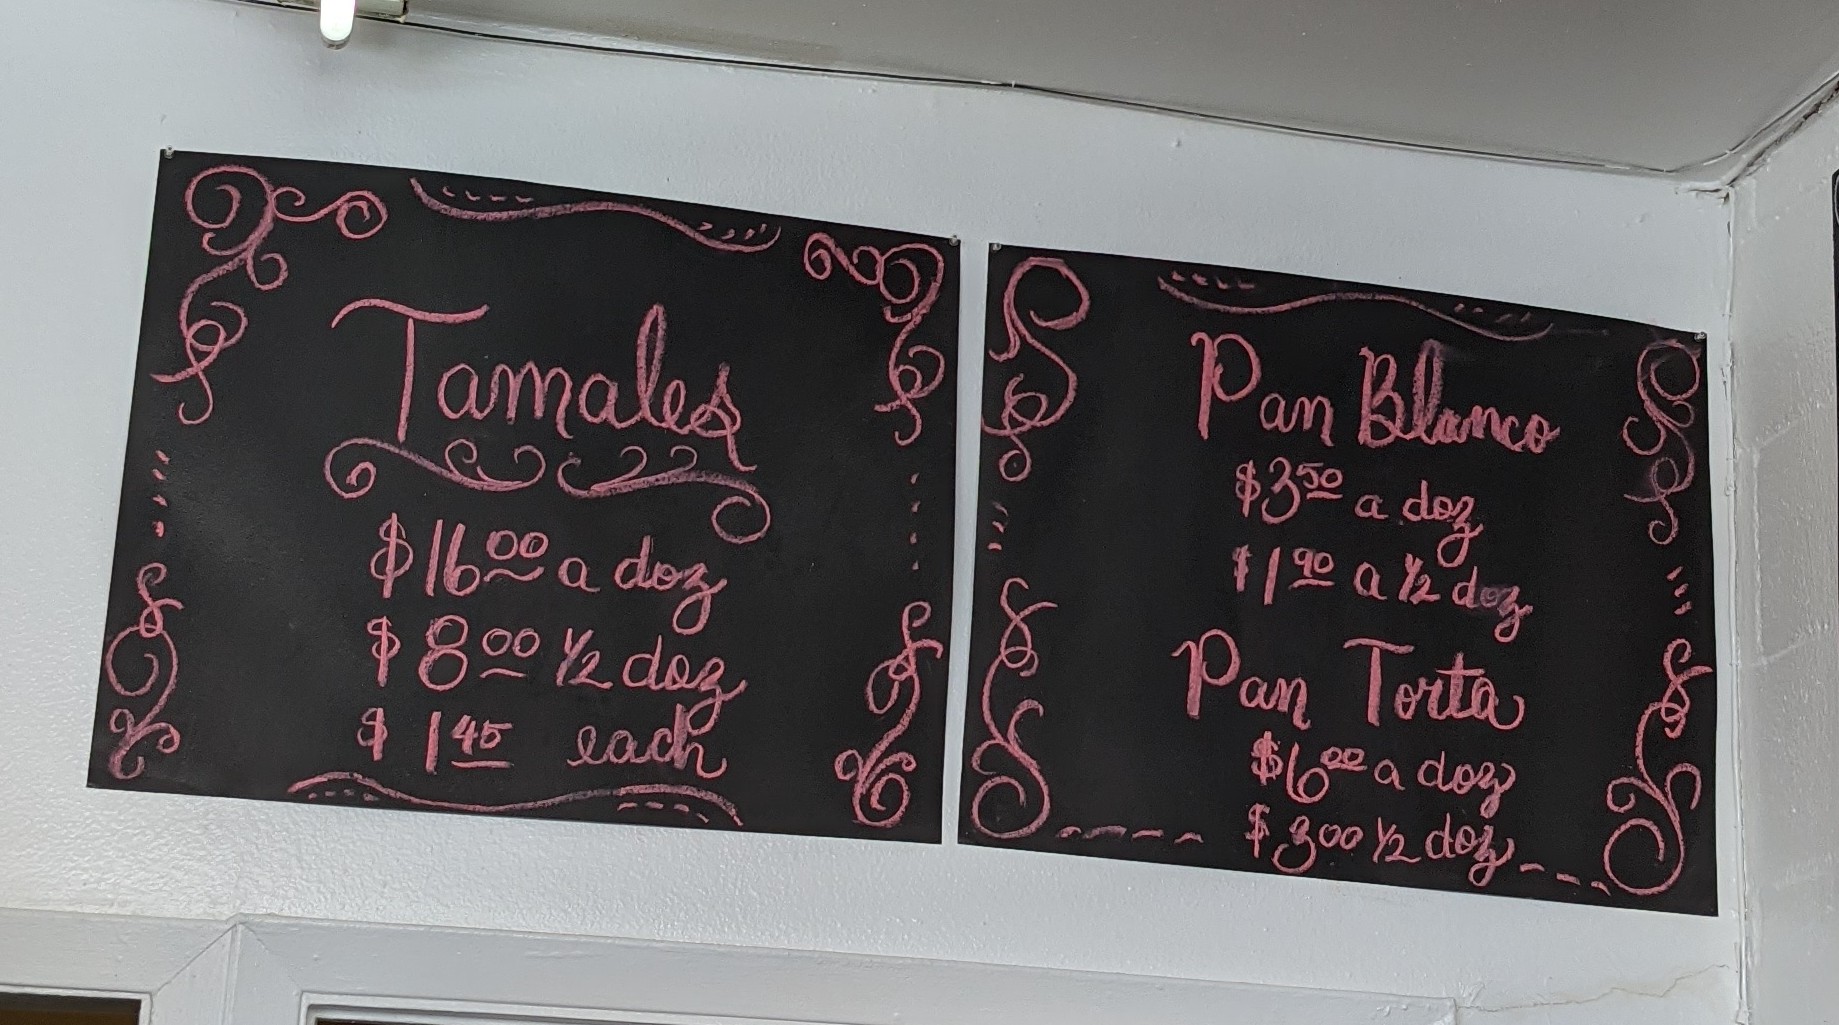 Tamales
$16.00 a doz
$8.00 1/2 doz
$1.45 each
Pan Blanco
$3.50 a doz
$1.90 a 1/2 doz
Pan Torta
$6.00 a doz
$3.00 1/2 doz